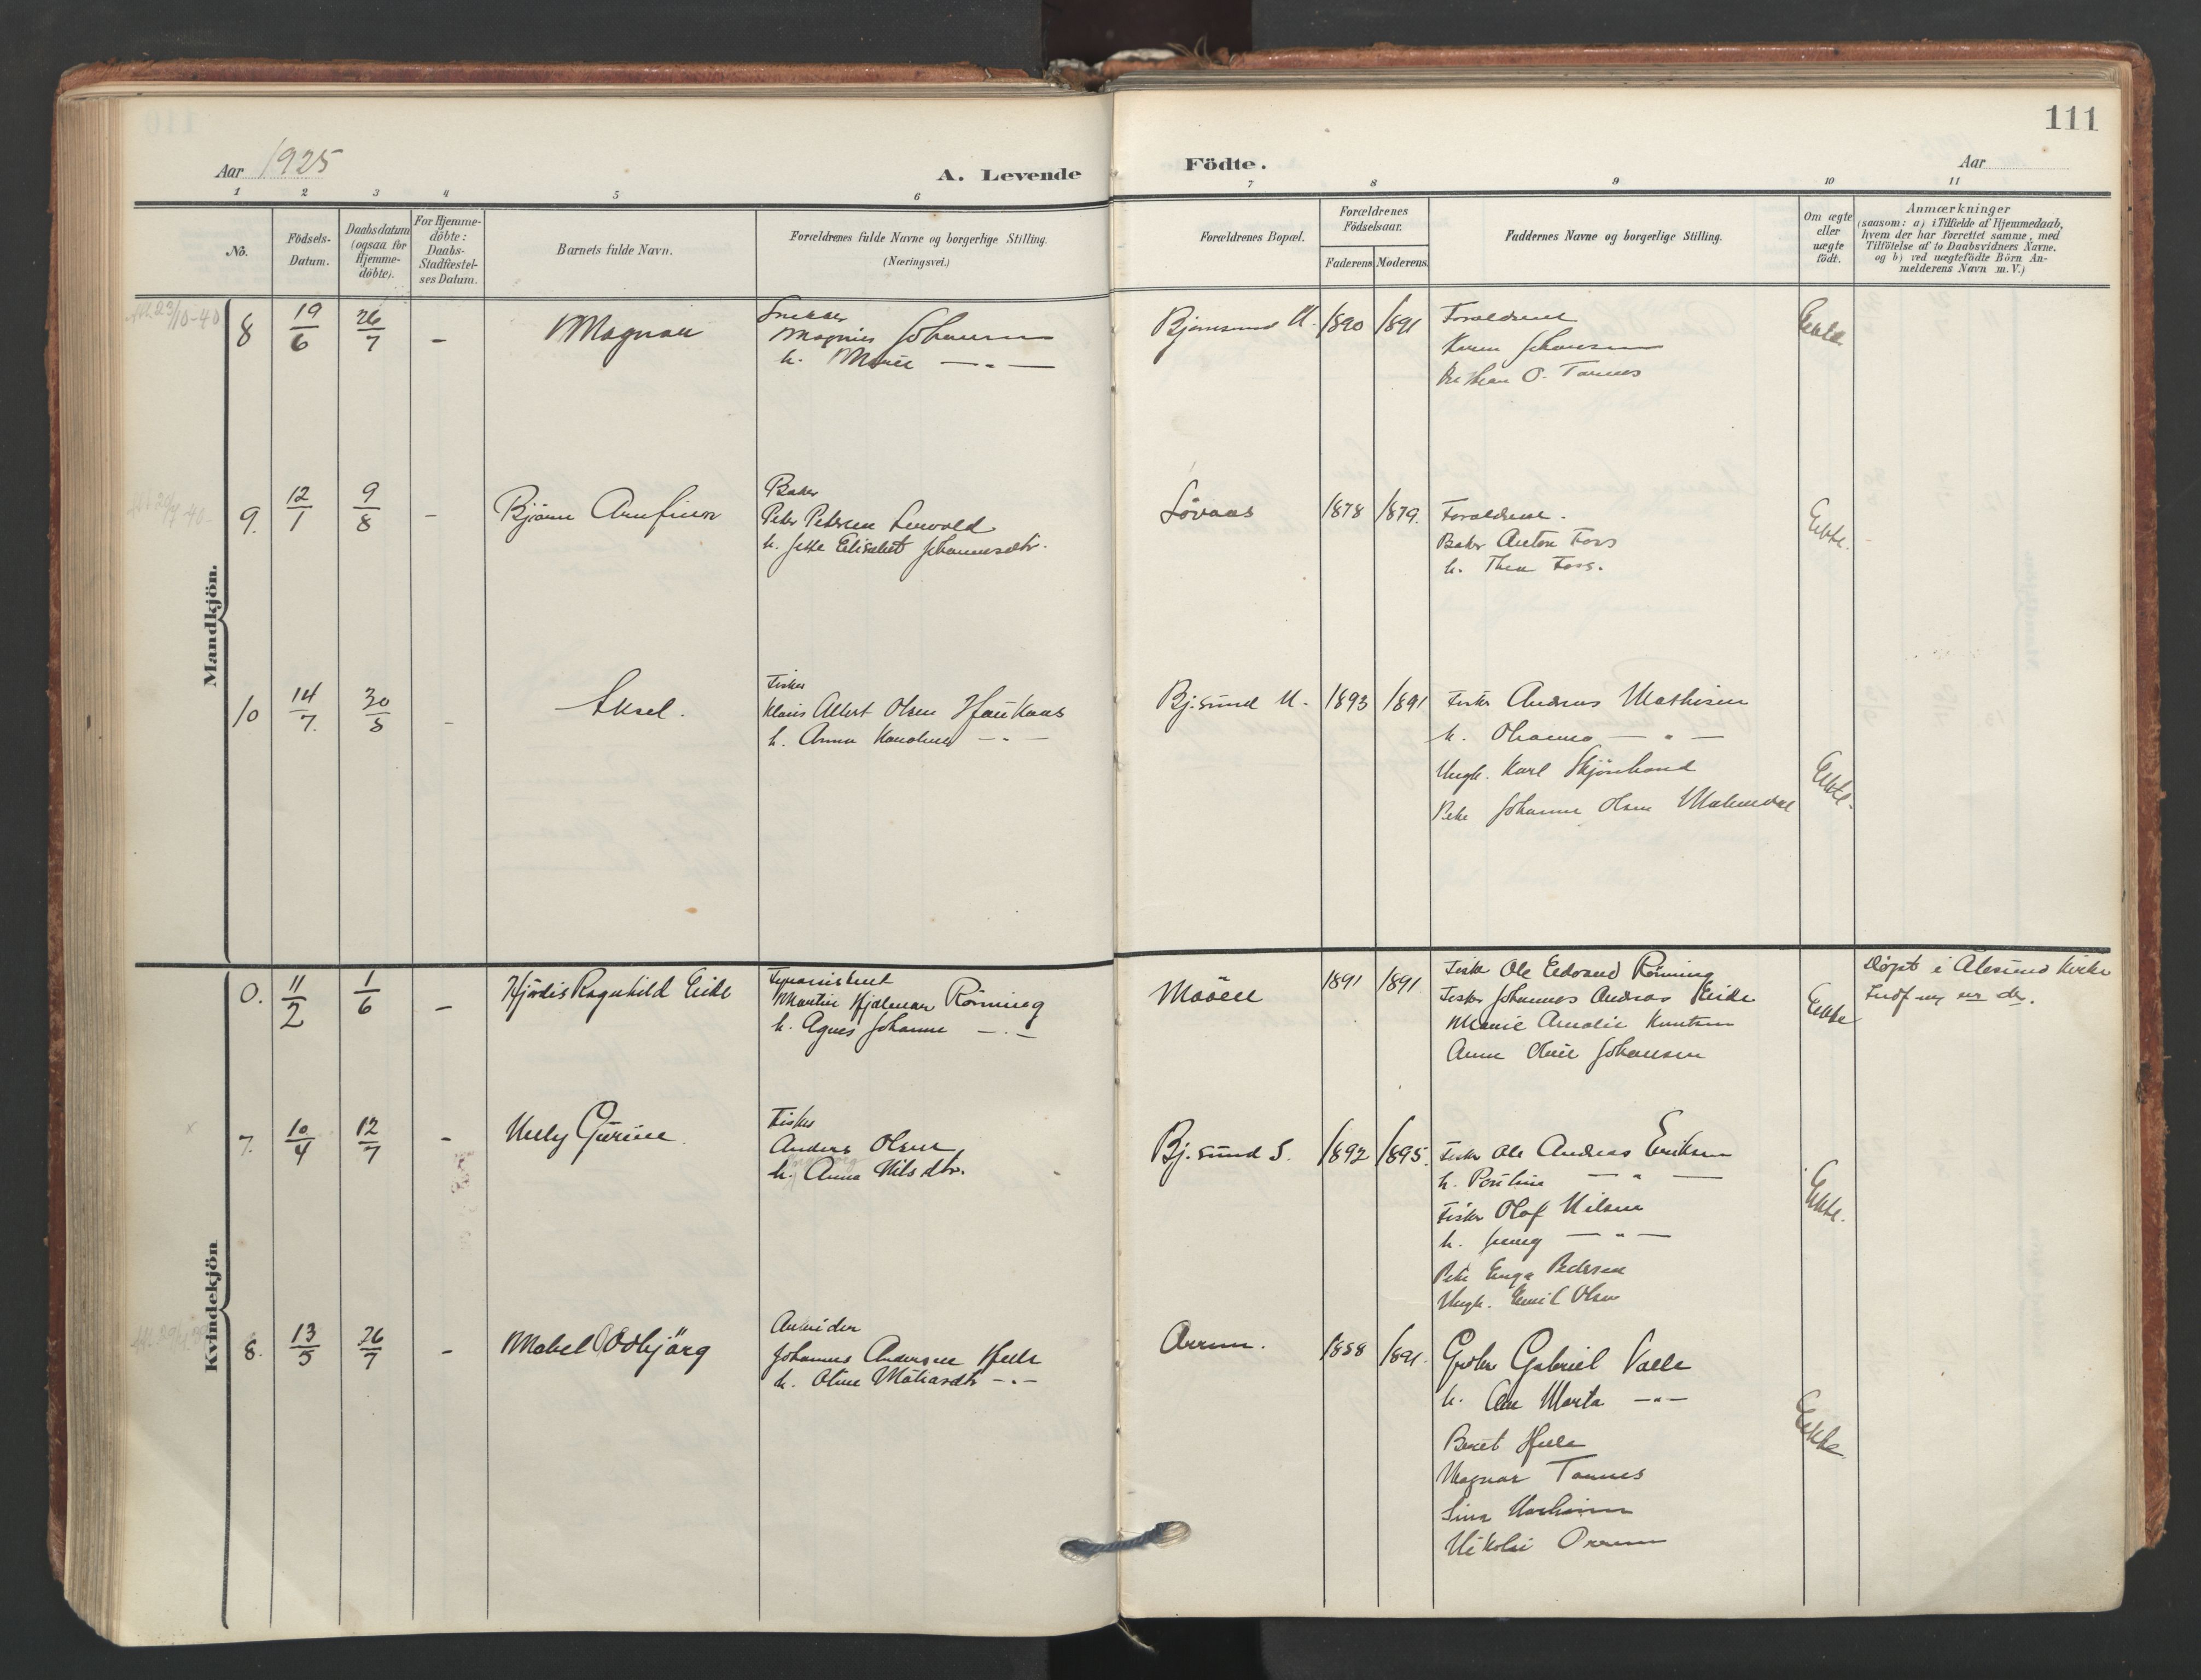 111
Aar 1925
A. Levende Födte.
Aar
1 2 3 4 5 6 7 8 9 10 11
No.
Födsels-
Datum.
Daabsdatum
(ogsaa for
Hjemme-
döbte).
For Hjemme-
döbte:
Daabs-
Stadfæstel-
ses Datum.
Barnets fulde Navn.
Forældrenes fulde Navne og borgerlige Stilling.
(Næringsvei.)
Forældrenes Bopæl.
Forældrenes
Födselsaar.
Faderens Moderens.
Faddernes Navne og borgerlige Stilling.
Om ægte
eller
uægte
födt.
Anmærkninger
(saasom: a) i Tilfælde af Hjemmedaab,
hvem der har forrettet samme, med
Tilföielse af to Daabsvidners Navne.
og b) ved uægtefödte Börn An-
melderens Navn m. V.)
Mandkjön.
8 19/6 26/7 -
Magnar
Magnus Johansen
h. Marie — " —
Bjørnsund N. 1890 1891
Foreldrene
Karen Johansen
O. Tannes
Ekte
9. 12/1 9/8 -
Bjørn Arnfinn
Baker
Peter Petersen
h. Jette Elisabet Johannesdtr.
Løvaas 1878 1879.
Foreldrene.
Baker Anton Foss
h. Thea Foss.
Ekte.
10 14/7. 30/8 -
Aksel.
Fisker
Klaus Albert Olsen Haukaas
h. Anna — " —
Bj.sund N. 1893 1891
Fisker Andreas Mathisen
h. — " —
Ungk. Karl
Pike Johanne Olsen Malmedal
Ekte.
Kvindekjön
0. 11/2 1/6 -
Hjørdis Ragnhild Eide
Martin Hjalmar Rönning
h. Agnes Johanne — " —
1891 1891
Fisker Ole Edvard Rönning
Fisker Johannes Andreas Eide
Marie Amalie Knutsen
Anne Oline Johansen
Ekte
Døpt i Ålesund kirke
7. 10/4 12/7 -
Nelly Gurine.
Fisker
Anders Olsen
h. Anna Nilsdtr.
Bj.sund S. 1892 1895.
Fisker Ole Andreas Eriksen
h. Pauline — " —
Fisker Olaf Nilsen
h. Jenny — " —
Pike Inga Pedersen
Ungk. Emil Olsen
Ekte.
8. 13/5 26/7 -
Mabel Oddbjörg
Arbeider
Johannes Andersen
h. Oline — " —
1888 1891.
Gabriel
h. Ane Marta — " —
Beret
Magnar Tannes
Nikolai
Ekte